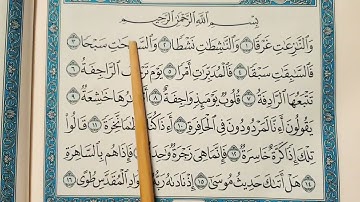 بِسْمِ اللَّهِ الرَّحْمَٰنِ الرَّحِيمِ
وَالنَّازِعَاتِ غَرْقًا ١ وَالنَّاشِطَاتِ نَشْطًا ٢ وَالسَّابِحَاتِ سَبْحًا ٣
فَالسَّابِقَاتِ سَبْقًا ٤ فَالْمُدَبِّرَاتِ أَمْرًا ٥ يَوْمَ الرَّاجِفَةُ ٦
تَتْبَعُهَا الرَّادِفَةُ ٧ قُلُوبٌ يَوْمَئِذٍ وَاجِفَةٌ ٨ خَاشِعَةٌ ٩
يَقُولُونَ أَءِنَّا لَمَرْدُودُونَ فِي الْحَافِرَةِ ١٠ أَءِذَا كُنَّا نَخِرَةً ١١ قَالُوا
تِلْكَ إِذًا كَرَّةٌ خَاسِرَةٌ ١٢ فَإِنَّمَا هِيَ زَجْرَةٌ ١٣ فَإِذَا هُم بِالسَّاهِرَةِ
١٤ هَلْ أَتَاكَ حَدِيثُ مُوسَىٰ ١٥ إِذْ نَادَاهُ رَبُّهُ الْمُقَدَّسِ طُوًى ١٦